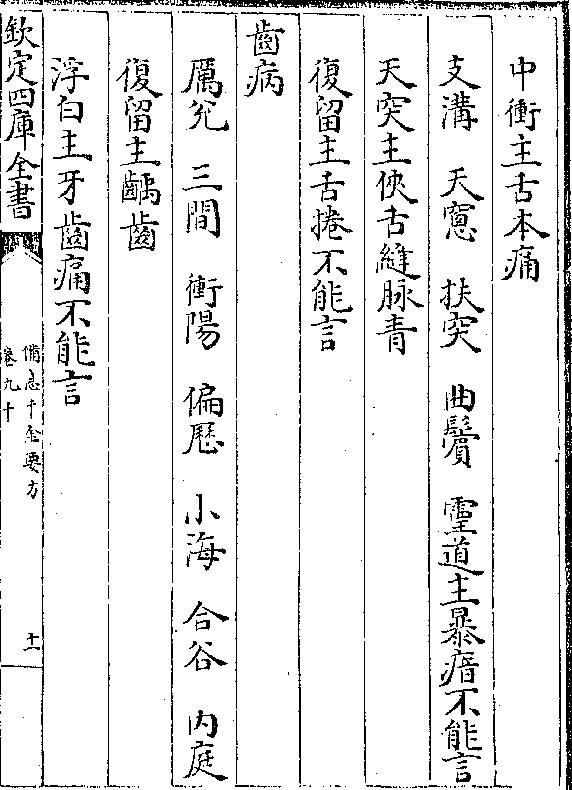 中衝主舌本痛
支溝　天窻　扶突　曲鬢　靈道主暴瘖不能言
天突主俠舌縫脉青
復留主舌捲不能言
齒病
厲兊　三間　衝陽　偏厯　小海　合谷　内庭
復留主齲齒
浮白主牙齒痛不能言
欽定四庫全書
備急千金要方
卷九十
十一